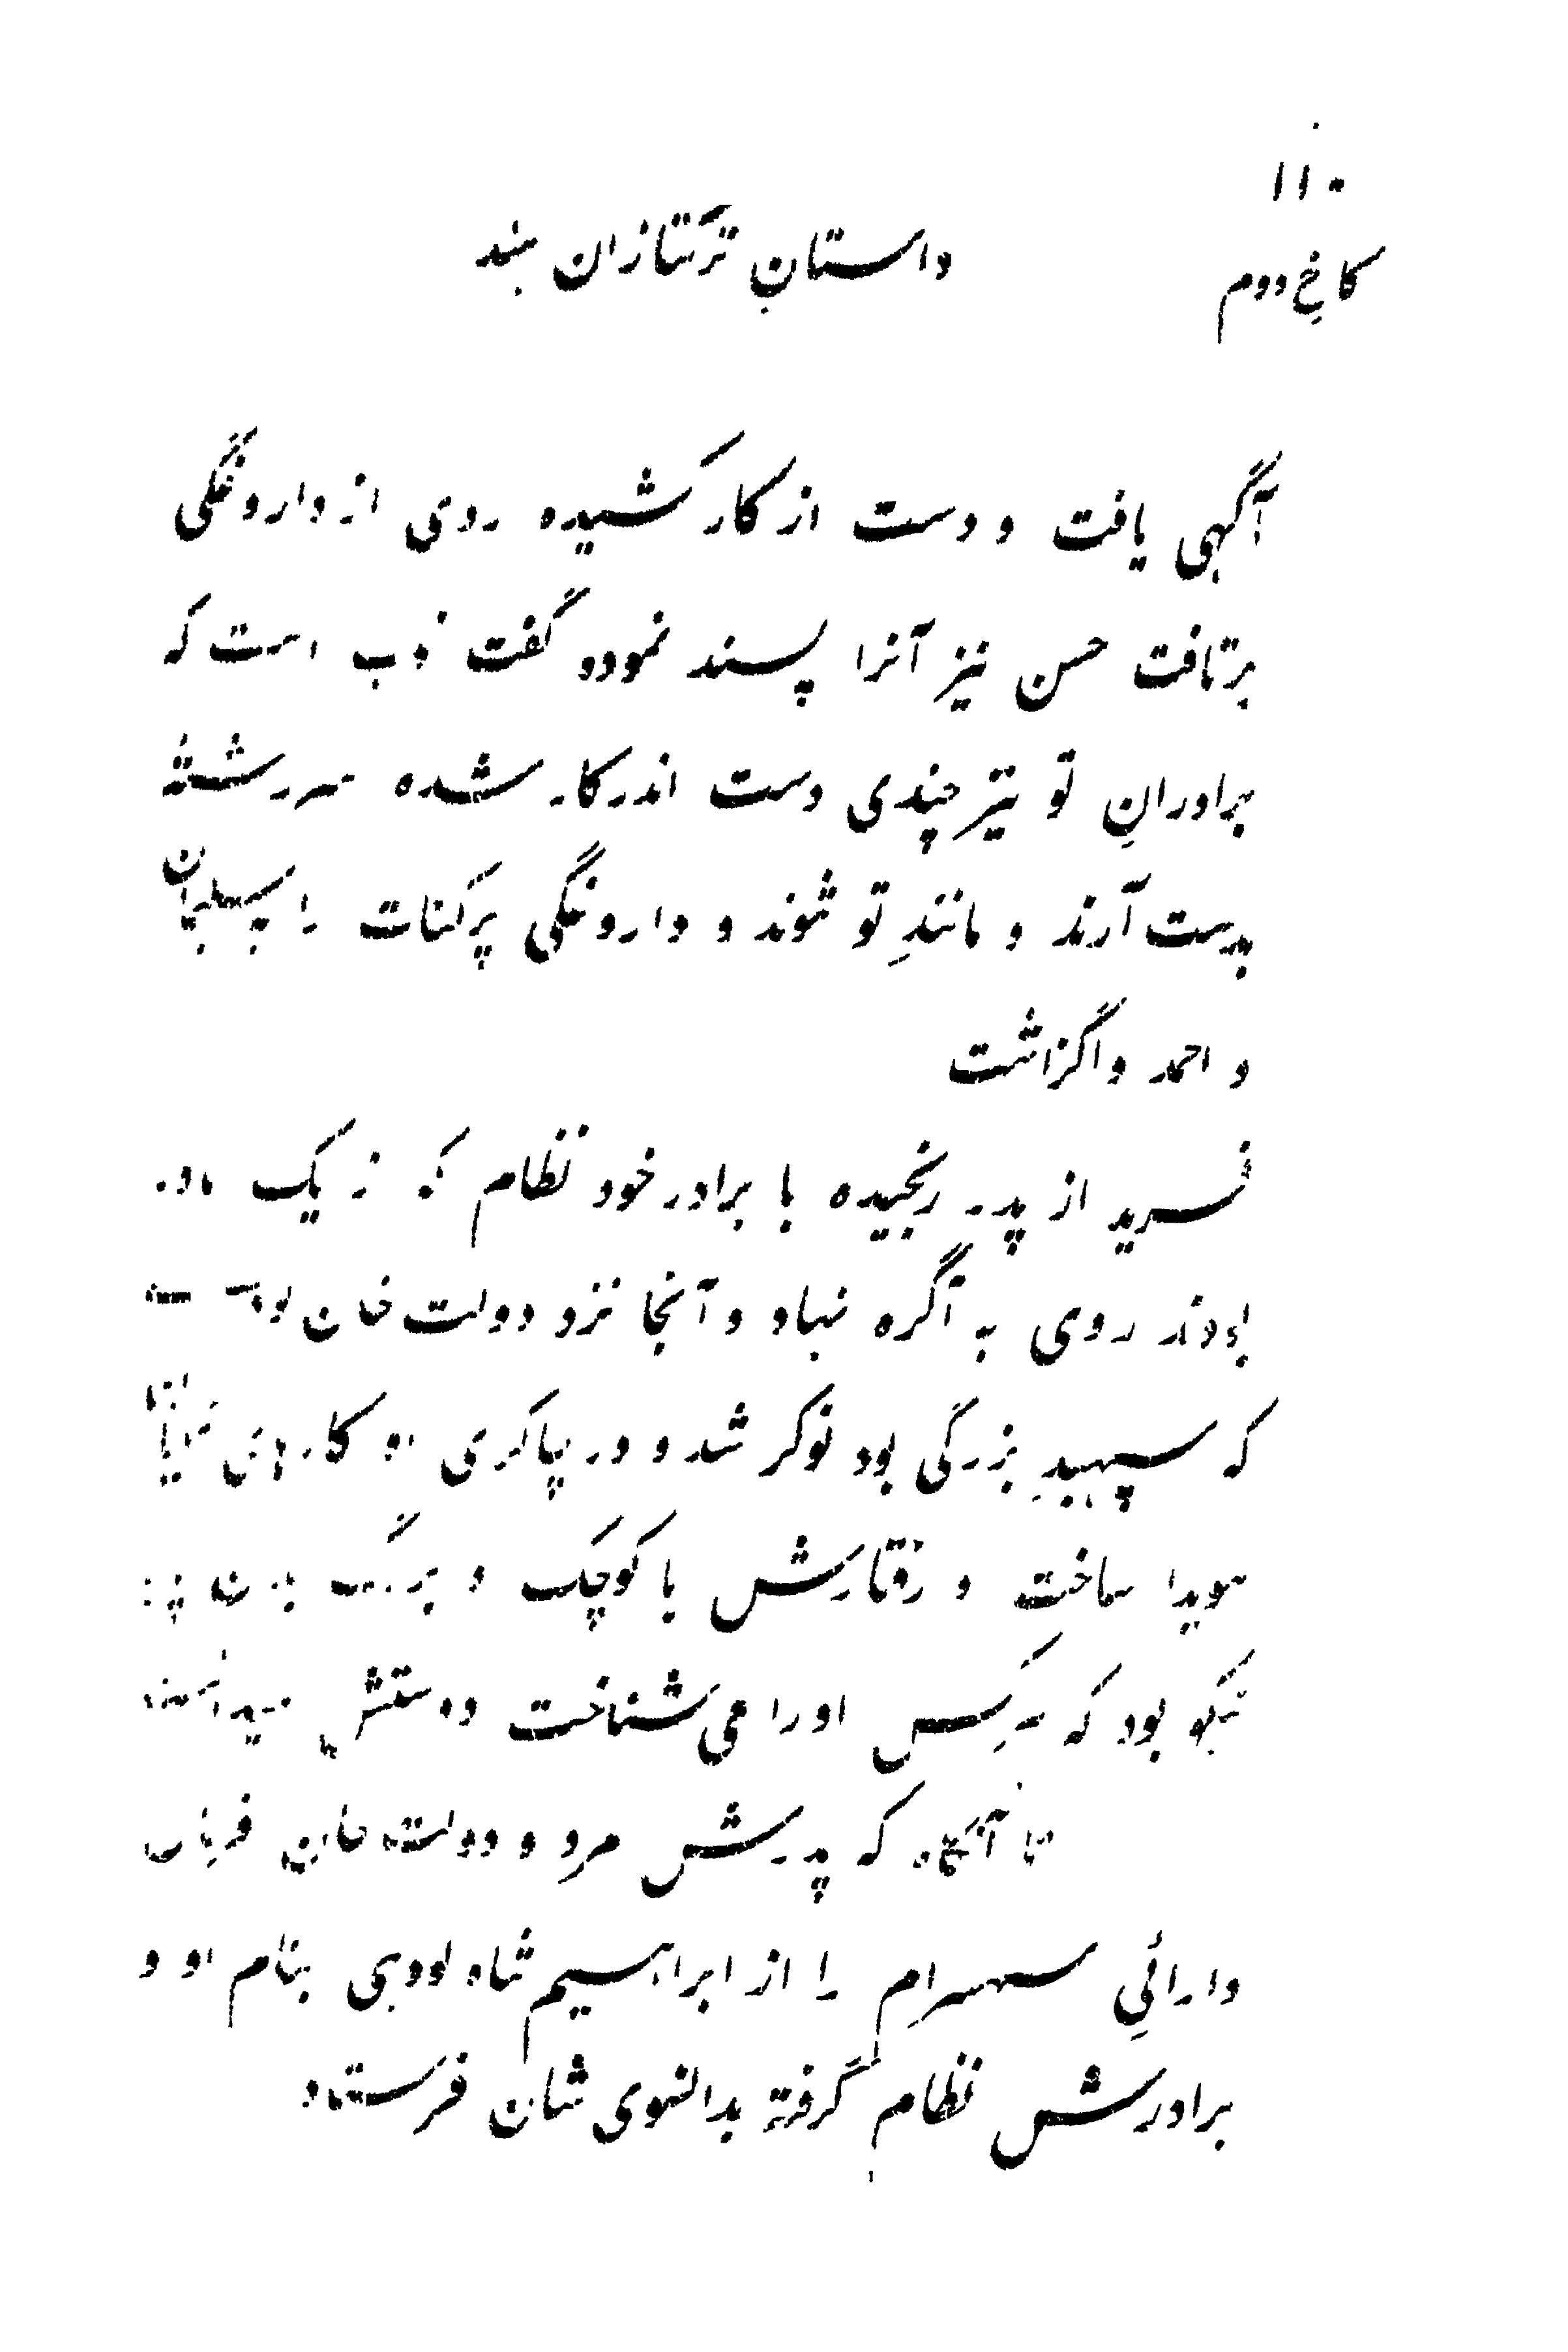 ۱۱۰
کاخِ دوم
داستانِ ترکتازان هند
آگهی یافت و دست از کار کشیده روی از داروغگی
برتافت حسن نیز آنرا پسند نموده گفت خوب است که
برادرانِ تو نیز چندی دست اندر کار شده سررشتهٔ
بدست آرند و مانندِ تو شوند و داروغگی پرکنات را بسلیمان
و احمد واگزاشت
فرید از پدر رنجیده با برادر خود نظام که از یک مادر
بودند روی به آگره نهاد و آنجا نزد دولت خان لودی
که سپهبدِ بزرگی بود نوکر شد و در چاکری او کارهای نمایان
هویدا ساخت و رفتارش با کوچک و بزرگ
نیکو بود که هر کس اورا می شناخت دوستش میداشت
تا آنگاه که پدرش مرد و دولت خان فرمان
دارائیِ سهسرام را از ابراهیم شاه لودهی بنام او و
برادرش نظام گرفته بدانسوی شان فرستاد